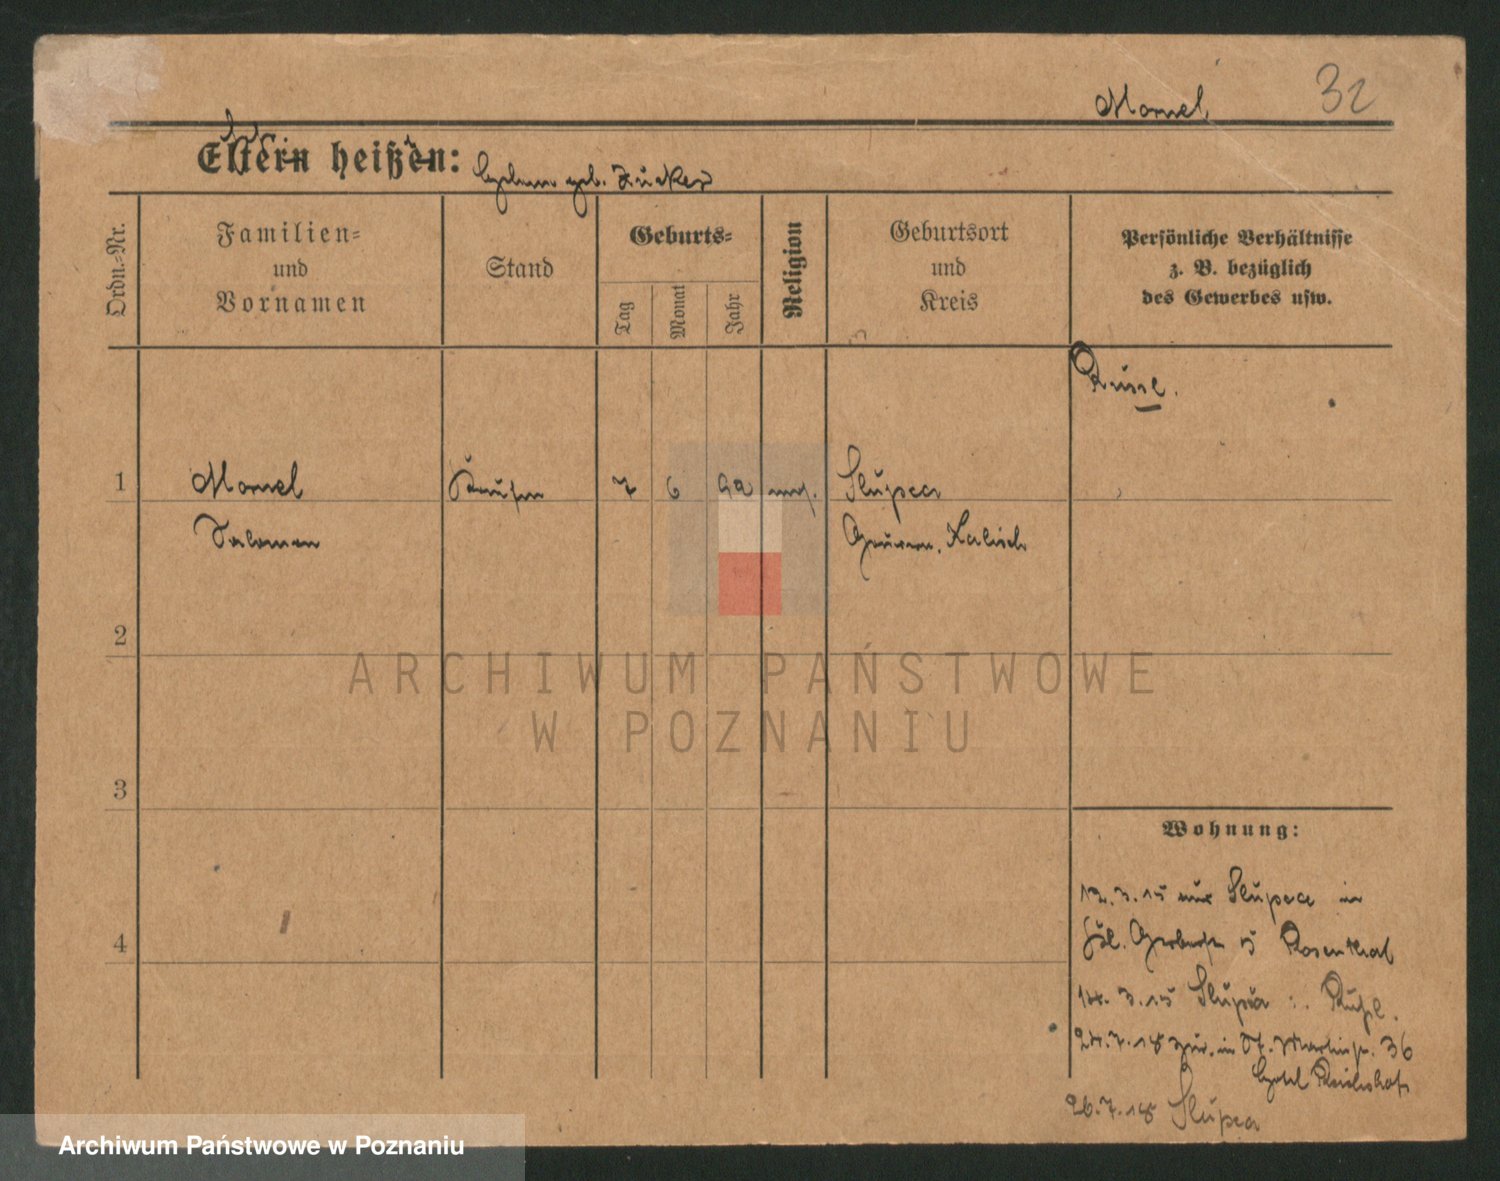 Mannel
32
Eltern heißen:
geb. Zucker
Ordn.-Nr.
Familien-
und
Vornamen
Stand
Geburts-
Tag
Monat
Jahr
Religion
Geburtsort
und
Kreis
Persönliche Verhältnisse
z. B. bezüglich
des Gewerbes usw.
Russl.
1
Mannel
7
6
92
mos.
Slupca
Salomon
Gouvern. Kalisch
2
ARCHIWUM PAŃSTWOWE
W POZNANIU
3
Wohnung:
12.3.15 aus Slupca in
Gerberstr 5 Rosenthal
14.3.15 Slupca :. Rußl.
24.7.18 zur. in St. Martinstr. 36
Hotel Reichshof
26.7.18 Slupca
4
Archiwum Państwowe w Poznaniu